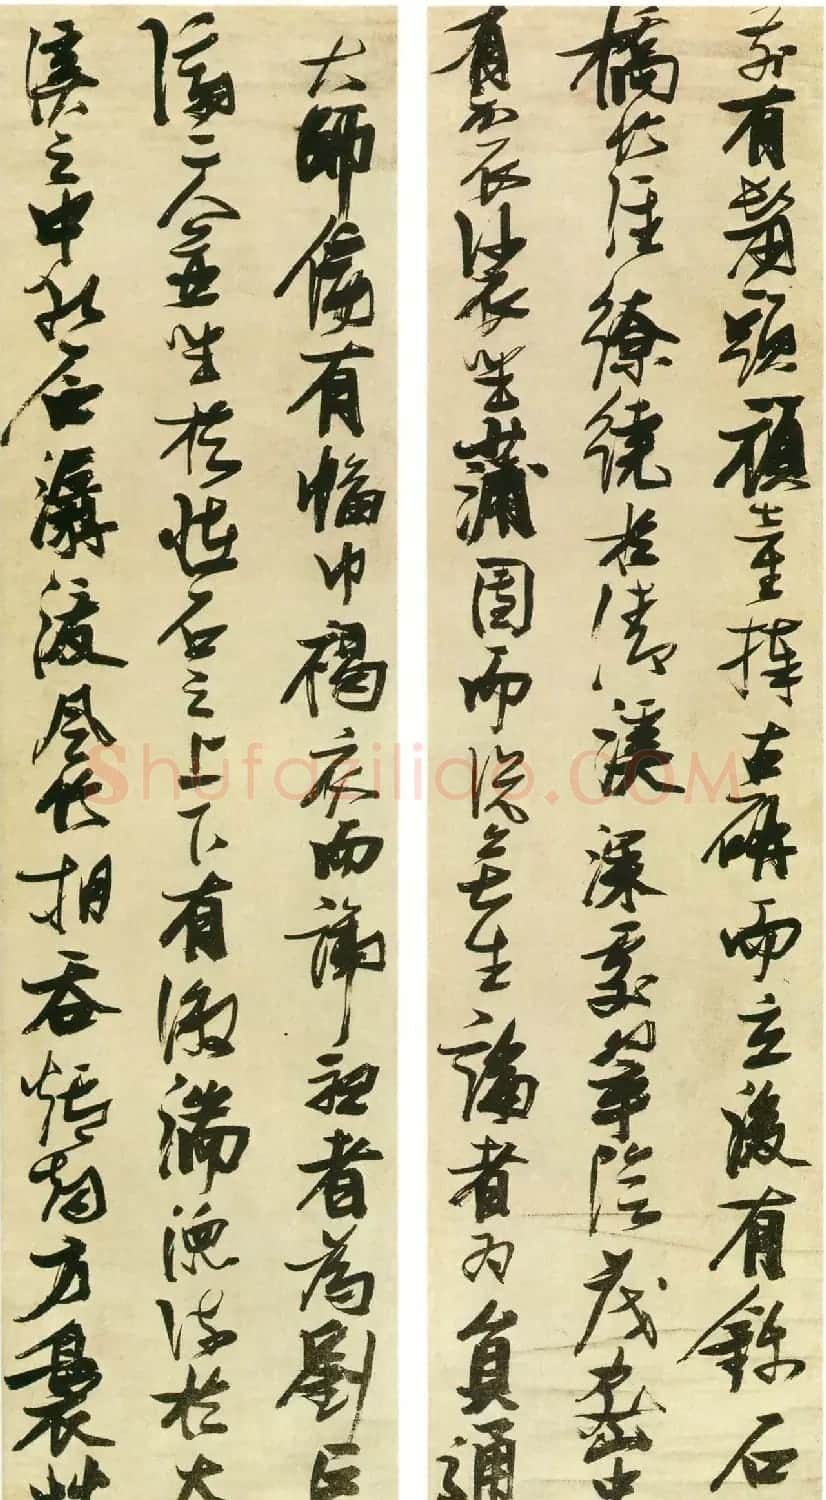 前有鬅頭頑童捧古硯而立後有錦石
橋竹徑繚繞於清溪深處翠陰茂密中
有袈裟坐蒲團而説無生論者為員通
大師傍有幅巾褐衣而諦聽者為劉巨
濟二人並坐於怪石之上下有激湍潨流於大
溪之中水石潺湲風竹相吞爐煙方裊艸
Shufaziliao.COM